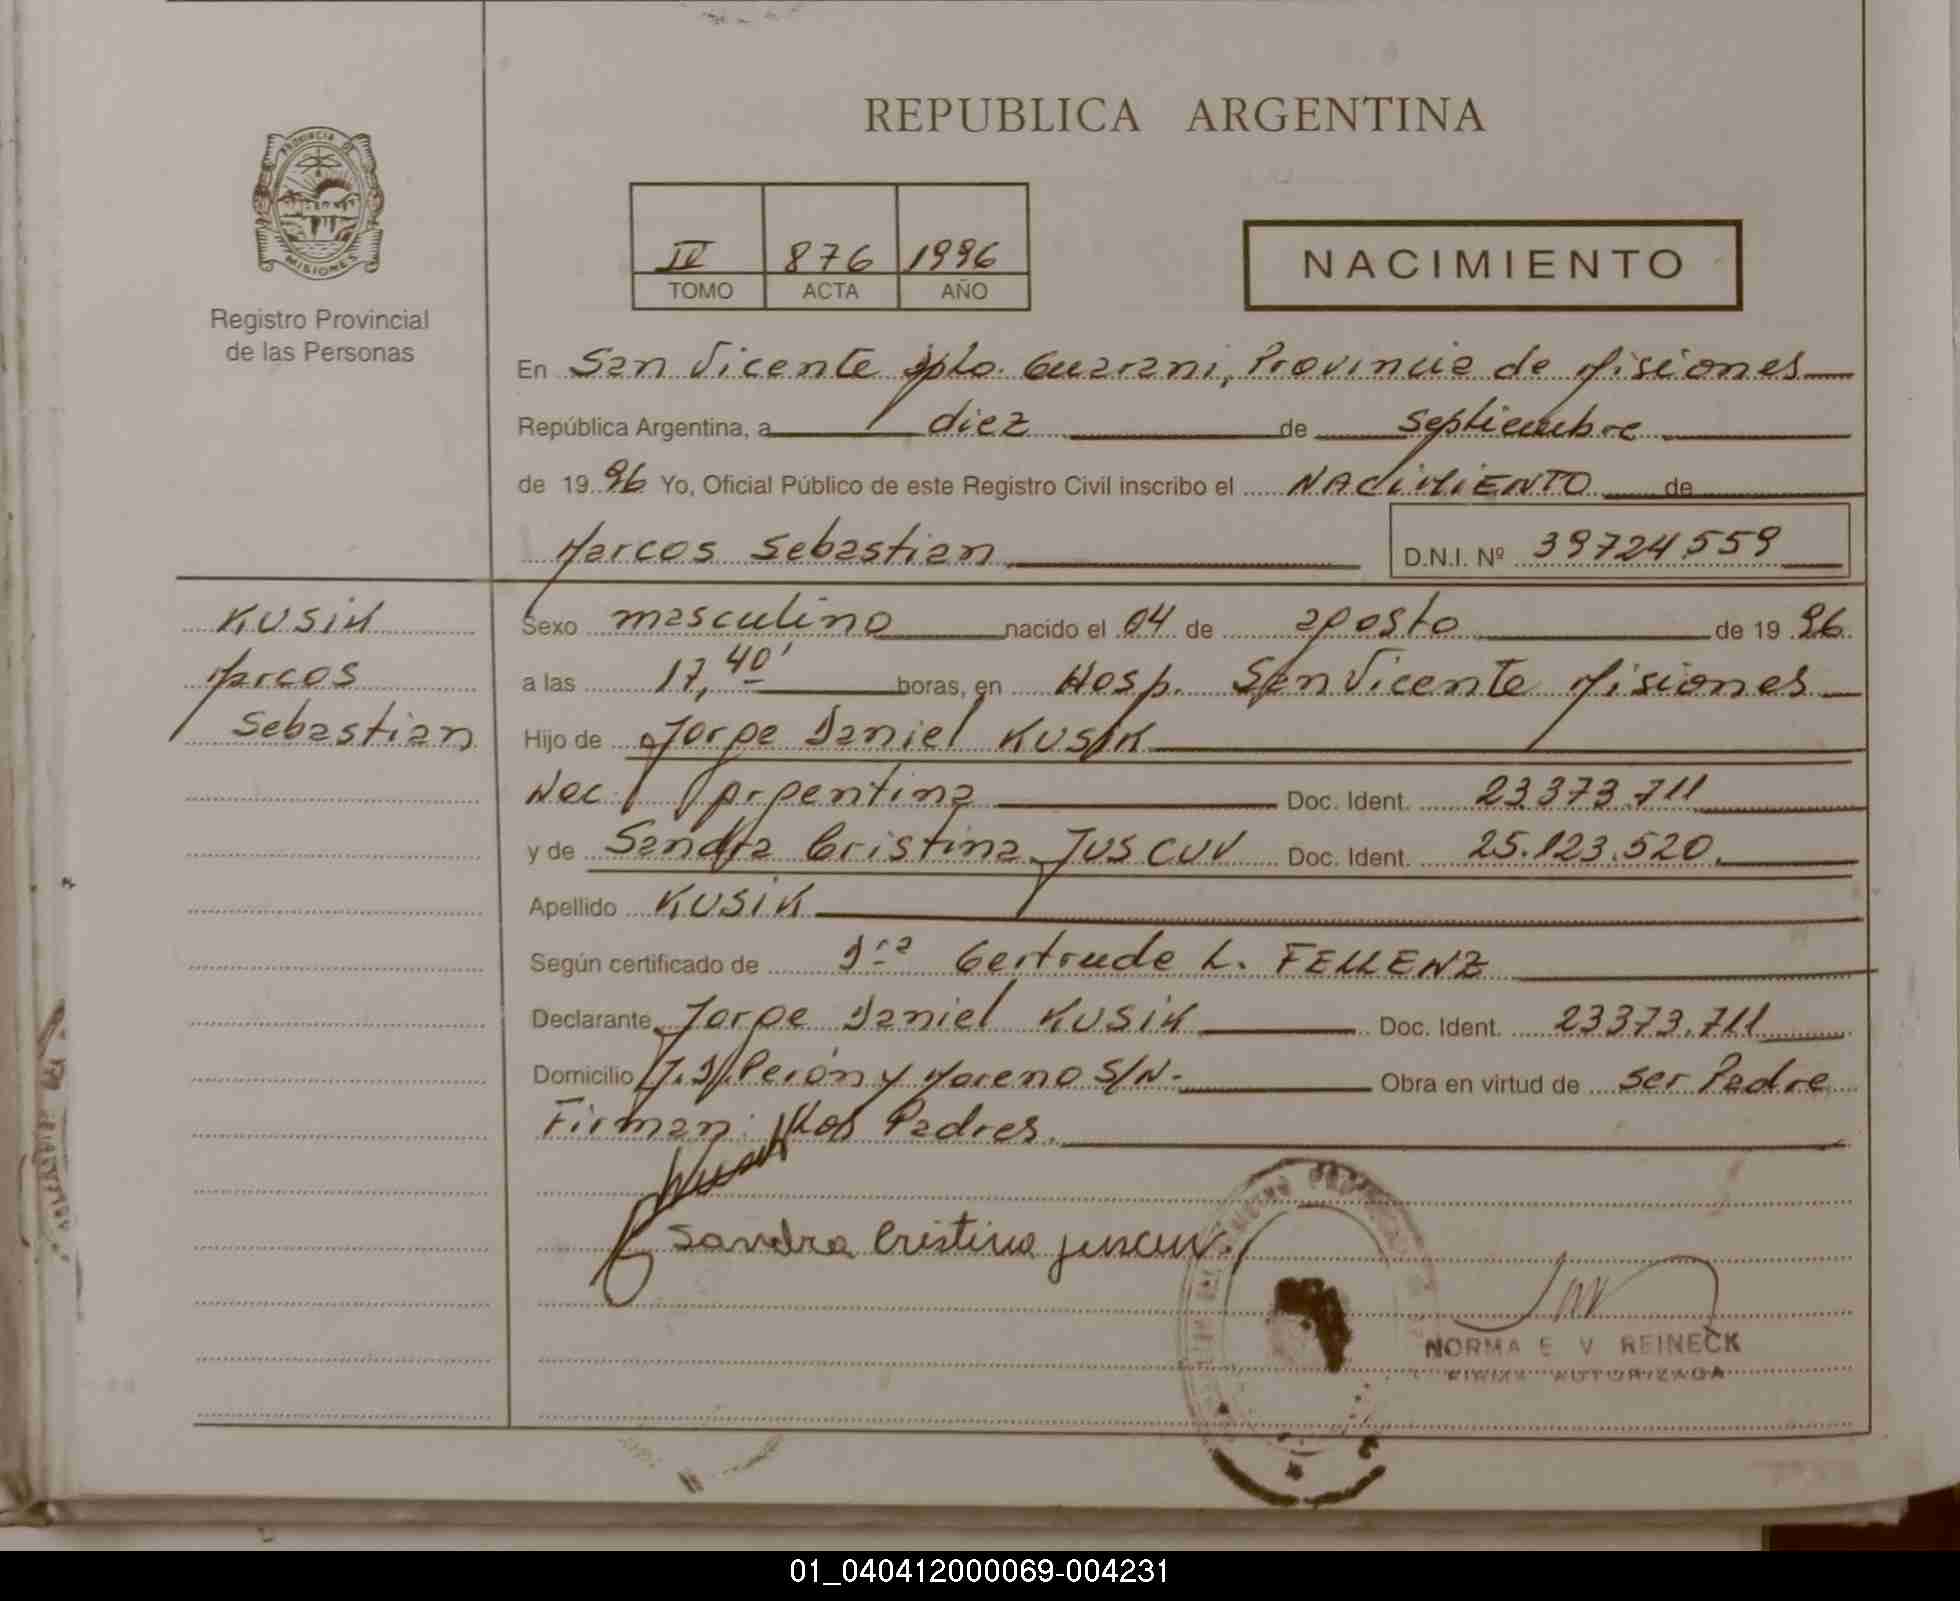 REPUBLICA ARGENTINA
PROVINCIA DE
MISIONES
Registro Provincial
de las Personas
IV 876 1996
TOMO ACTA AÑO
NACIMIENTO
En San Vicente Dpto. Guarani, Provincia de Misiones
República Argentina, a diez de septiembre
de 19 96 Yo, Oficial Público de este Registro Civil inscribo el NACIMIENTO de
Marcos Sebastian D.N.I. Nº 39724559
KUSIK
Marcos
Sebastian
Sexo masculino nacido el 04 de agosto de 19 96
a las 17,40' horas, en Hosp. San Vicente Misiones
Hijo de Jorge Daniel KUSIK
Nac. Argentina Doc. Ident. 23.373.711
y de Sandra Cristina JUSCUV Doc. Ident. 25.123.520.
Apellido KUSIK
Según certificado de Dra Gertrude L. FELLENZ
Declarante Jorge Daniel KUSIK Doc. Ident. 23373.711
Domicilio J.D. Perón y Moreno S/N.- Obra en virtud de ser Padre
Firman: Los Padres.
Kusik
Sandra Cristina Juscuv.
NORMA E V REINECK
FIRMA AUTORIZADA
01_040412000069-004231